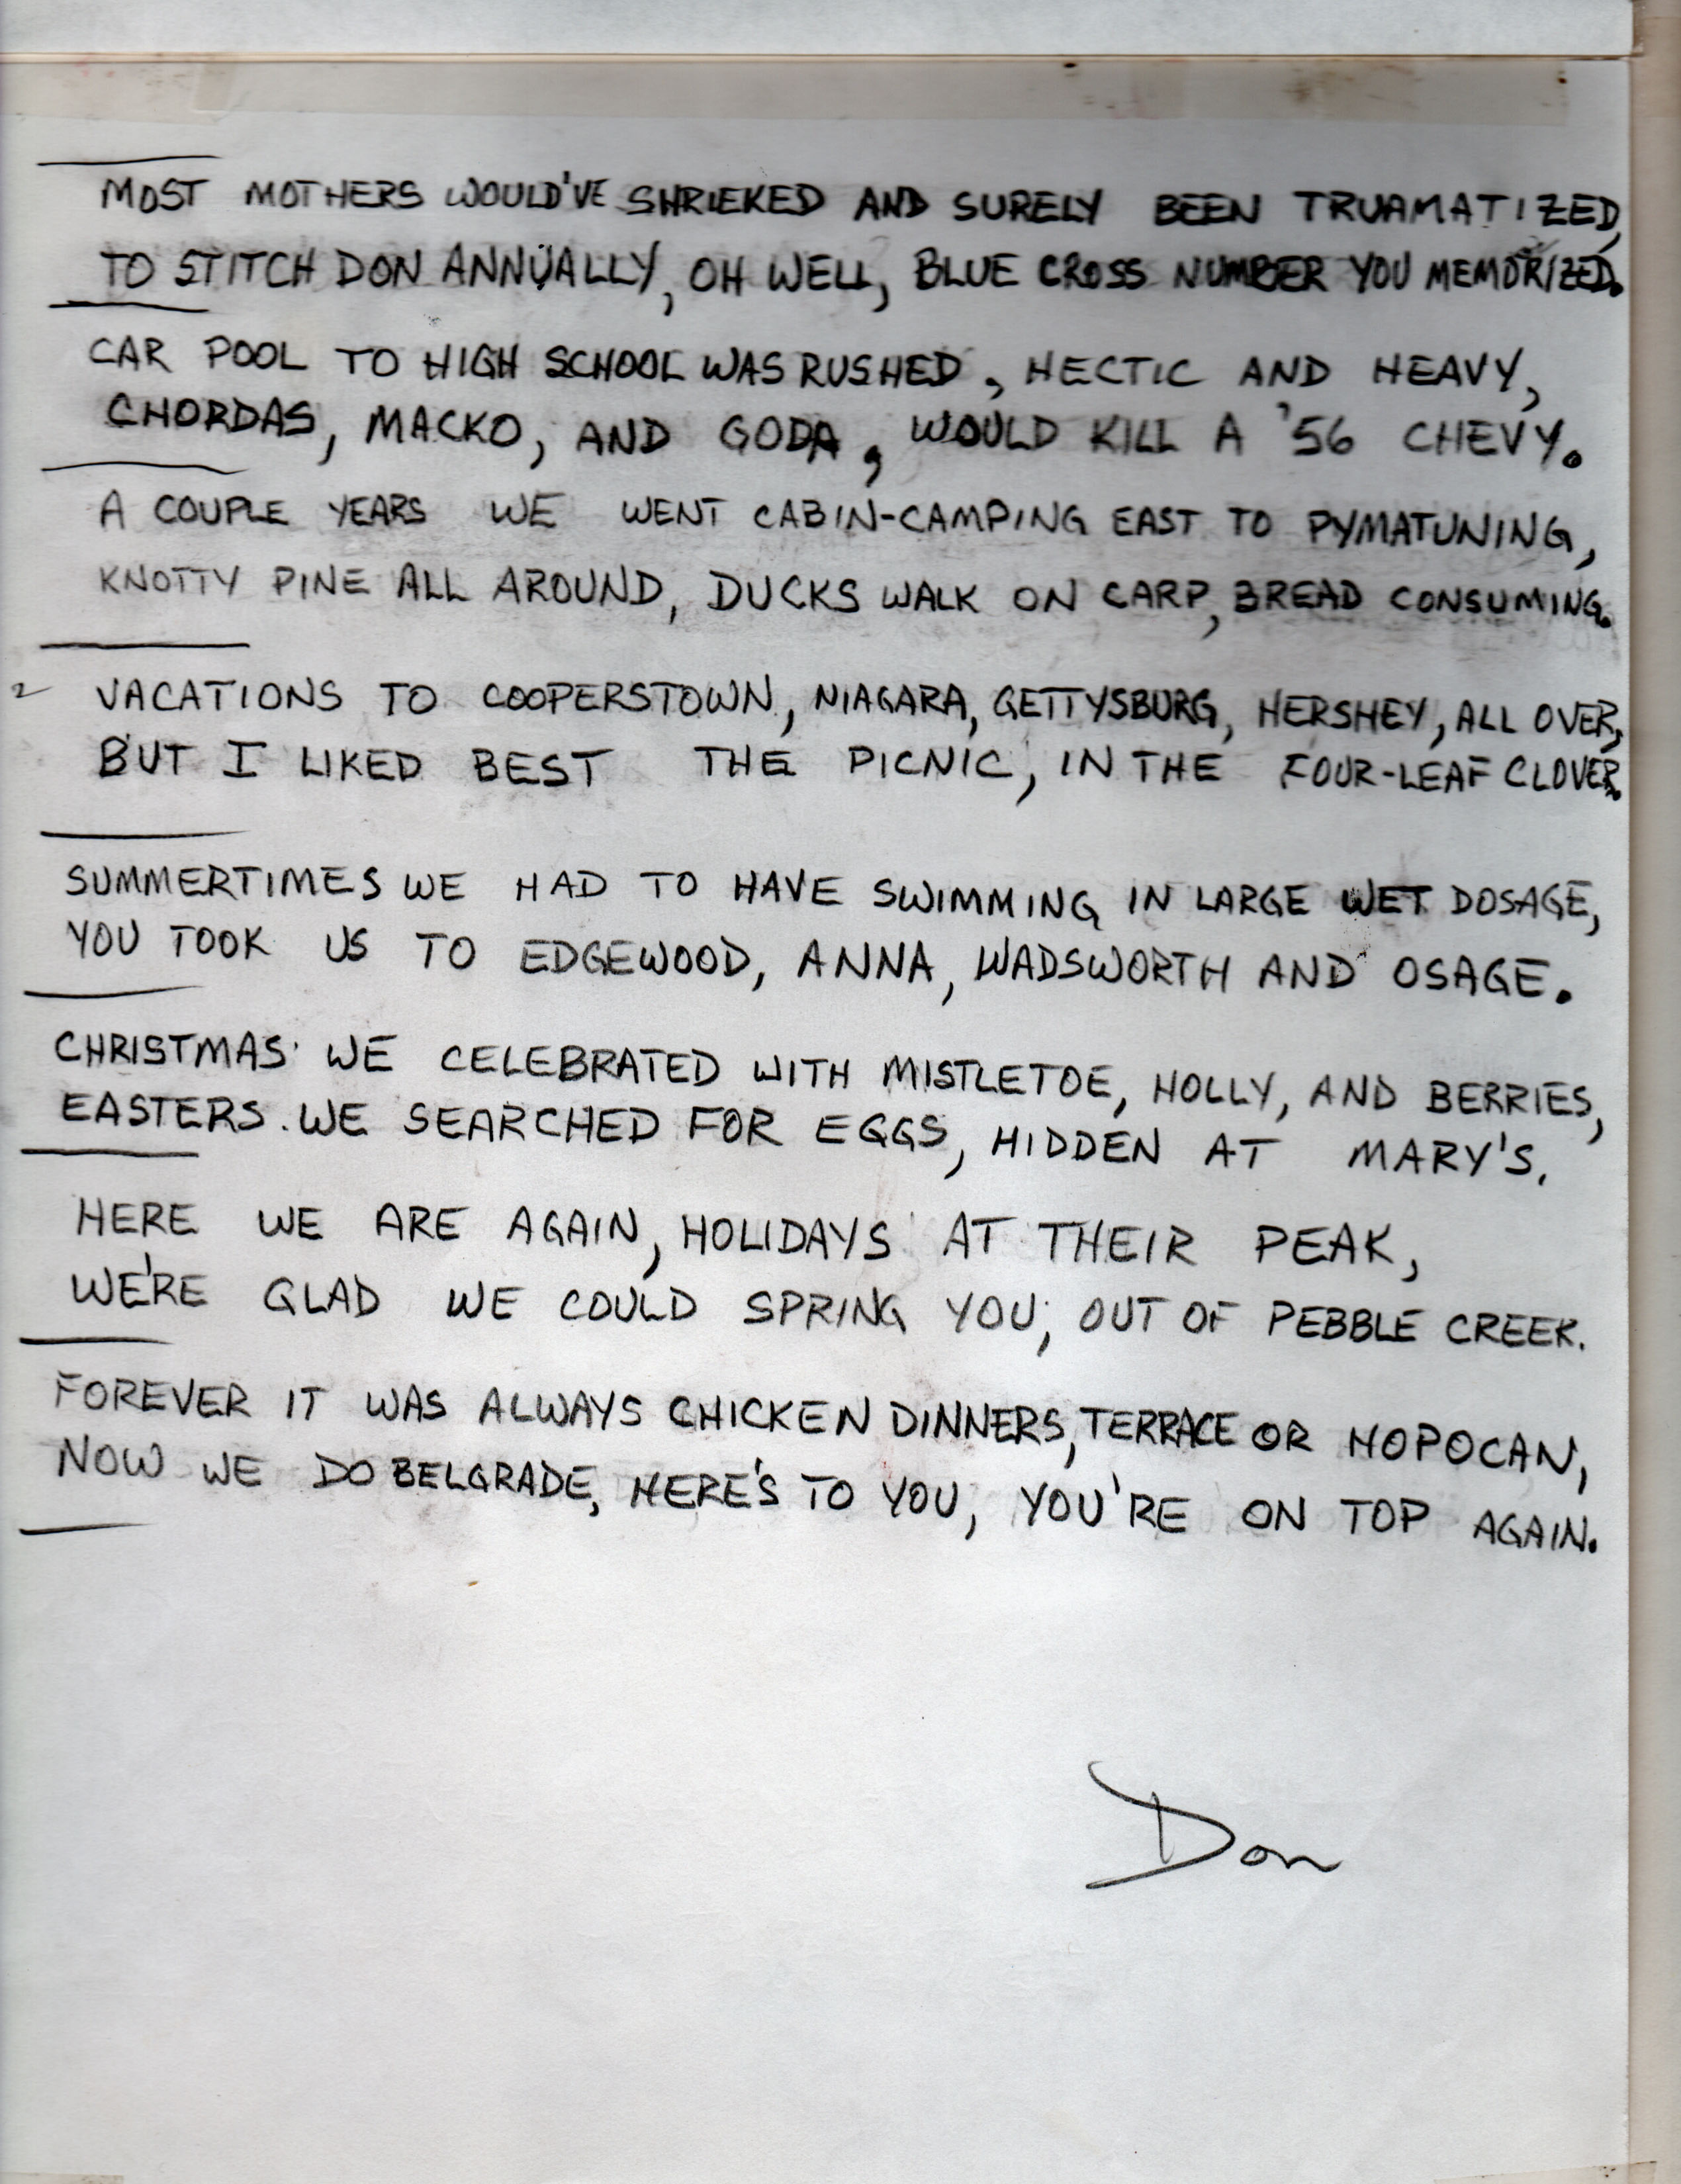 MOST MOTHERS WOULD'VE SHRIEKED AND SURELY BEEN TRUAMATIZED,
TO STITCH DON ANNUALLY, OH WELL, BLUE CROSS NUMBER YOU MEMORIZED.
CAR POOL TO HIGH SCHOOL WAS RUSHED, HECTIC AND HEAVY,
CHORDAS, MACKO, AND GODA, WOULD KILL A '56 CHEVY.
A COUPLE YEARS WE WENT CABIN-CAMPING EAST TO PYMATUNING,
KNOTTY PINE ALL AROUND, DUCKS WALK ON CARP, BREAD CONSUMING.
2 VACATIONS TO COOPERSTOWN, NIAGARA, GETTYSBURG, HERSHEY, ALL OVER,
BUT I LIKED BEST THE PICNIC, IN THE FOUR-LEAF CLOVER.
SUMMERTIMES WE HAD TO HAVE SWIMMING IN LARGE WET DOSAGE,
YOU TOOK US TO EDGEWOOD, ANNA, WADSWORTH AND OSAGE.
CHRISTMAS WE CELEBRATED WITH MISTLETOE, HOLLY, AND BERRIES,
EASTERS WE SEARCHED FOR EGGS, HIDDEN AT MARY'S.
HERE WE ARE AGAIN, HOLIDAYS AT THEIR PEAK,
WE'RE GLAD WE COULD SPRING YOU, OUT OF PEBBLE CREEK.
FOREVER IT WAS ALWAYS CHICKEN DINNERS, TERRACE OR HOPOCAN,
NOW WE DO BELGRADE, HERE'S TO YOU, YOU'RE ON TOP AGAIN.
Don